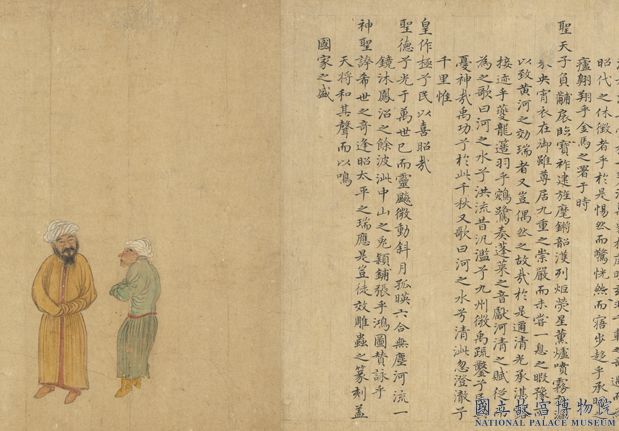 昭代之休徵者乎於是惕然而驚恍然而寤步趨乎承明
廬翱翔乎金馬之署于時
聖天子負黼扆臨寶祚建旌麾鏘韶濩列炬熒星薰爐噴霧
未央宵衣在御雖尊居九重之崇嚴而未嘗一息之暇豫
以致黃河之効瑞者又豈偶然之故哉於是通清光承湛
接迹乎夔龍羽乎鵷鷺奏蓬萊之音獻河清之賦從
為之歌曰河之水兮洪流昔汎濫兮九州微禹疏鑿兮民
憂神哉禹功兮於此千秋又歌曰河之水兮清此忽澄澈兮
千里惟
皇作極兮民以喜昭哉
聖德兮光于萬世已而靈飈微動斜月孤暎六合無塵河流一
鏡沐鳳沼之餘波泚中山之兔穎鋪張乎鴻圖贊詠乎
神聖誇希世之奇逢昭太平之瑞應是豈徒效雕蟲之篆刻蓋
天将和其聲而以鳴
國家之盛
國立故宮博物院
NATIONAL PALACE MUSEUM